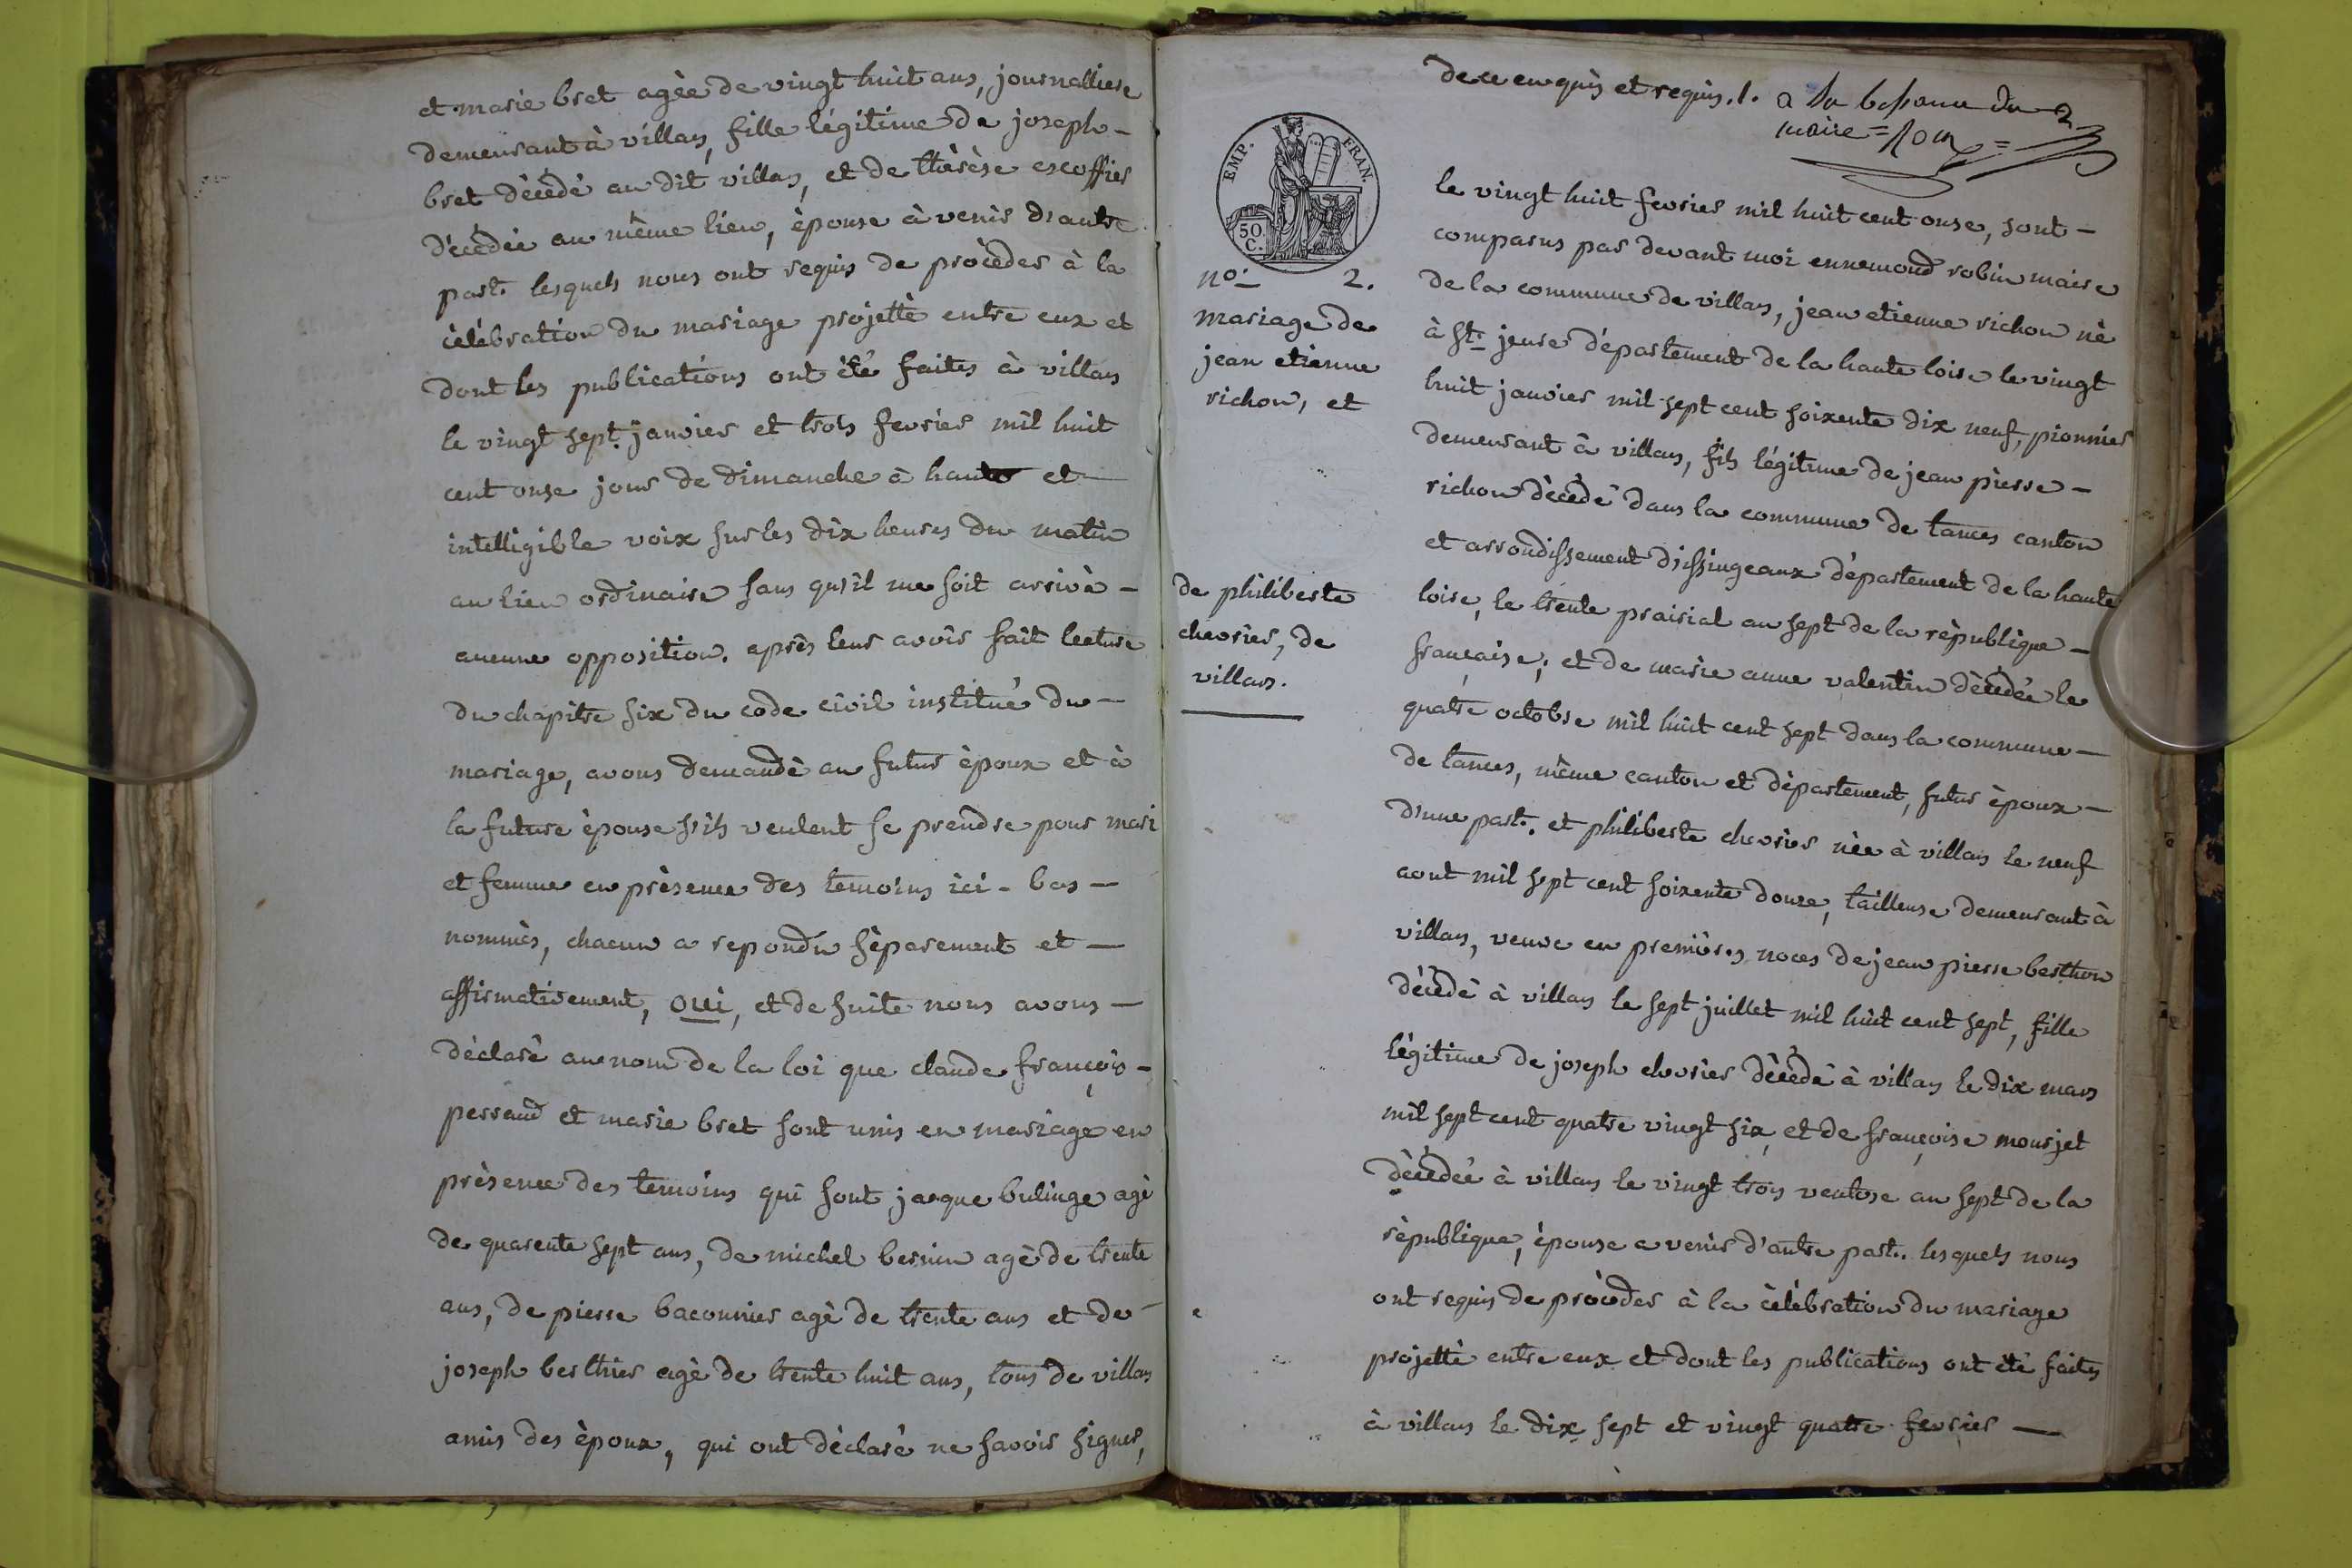 et marie bret agèe de vingt huit ans, journalliere
demeurant à villars, fille légitime de joseph -
bret dècèdè au dit villars, et de thèrèse escoffier
dècèdèe au même lieu, èpouse à venir d'autre
part. lesquels nous ont requis de procèder à la
cèlèbration du mariage projettè entre eux et
dont les publications ont ètè faites à villars
le vingt sept janvier et trois fevrier mil huit
cent onse jour de dimanche à haute et
intelligible voix sur les dix heures du matin
au lieu ordinaire sans qu'il me soit arrivè -
aucune opposition. après leur avoir fait lecture
du chapitre six du code civil institué du -
mariage, avons demandè au futur èpoux et à
la future èpouse s'ils veulent se prendre pour mari
et femme en prèsence des temoins ici - bas -
nommès, chacun a repondu sèparement et -
affirmativement, oui, et de suite nous avons -
dèclarè au nom de la loi que claude françois -
perraud et marie bret sont unis en mariage en
prèsence des temoins qui sont jacque bulinge agè
de quarente sept ans, de michel bernin agè de trente
ans, de pierre baconnier agè de trente ans et de
joseph berthier agè de trente huit ans, tous de villars
amis des èpoux, qui ont dèclarè ne savoir signer,
de ce enquis et requis. /.
maire =
EMP. FRAN.
50.
C.
no. 2.
mariage de
jean etienne
richon, et
de philiberte
chevrier, de
villars.
le vingt huit fevrier mil huit cent onse, sont -
comparus par devant moi ennemond robin maire
de la commune de villars, jean etienne richon nè
à st. jeure dèpartement de la haute loire le vingt
huit janvier mil sept cent soixente dix neuf, pionnier
demeurant à villars, fils légitime de jean pierre -
richon dècèdè dans la commune de tances canton
et arrondissement d'issingeaux dèpartement de la haute
loire, le trente prairial an sept de la rèpublique -
française; et de marie anne valentin dècèdèe le
quatre octobre mil huit cent sept dans la commune -
de tances, même canton et dèpartement, futur èpoux -
d'une part. et philiberte chevrier nèe à villars le neuf
aout mil sept cent soixente douze, tailleuse demeurant à
villars, veuve en premières noces de jean pierre berthon
dècèdè à villars le sept juillet mil huit cent sept, fille
légitime de joseph chevrier dècèdè à villars le dix mars
mil sept cent quatre vingt six, et de françoise mourjet
dècèdèe à villars le vingt trois ventose an sept de la
rèpublique, èpouse a venir d'autre part. lesquels nous
ont requis de procèder à la cèlèbration du mariage
projettè entre eux et dont les publications ont ètè faites
à villars le dix sept et vingt quatre fevrier -